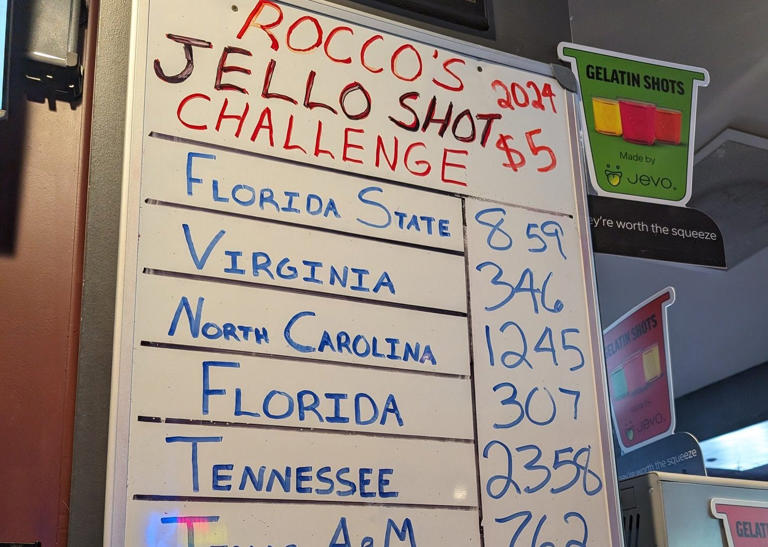 ROCCO'S 2024
JELLO SHOT $5
CHALLENGE
FLORIDA STATE 859
VIRGINIA 346
NORTH CAROLINA 1245
FLORIDA 307
TENNESSEE 2358
TEXAS A&M 762
GELATIN SHOTS
Made by
Jevo.
ey're worth the squeeze
GELATIN SHOTS
Jevo.
worth the squeeze
GELAT